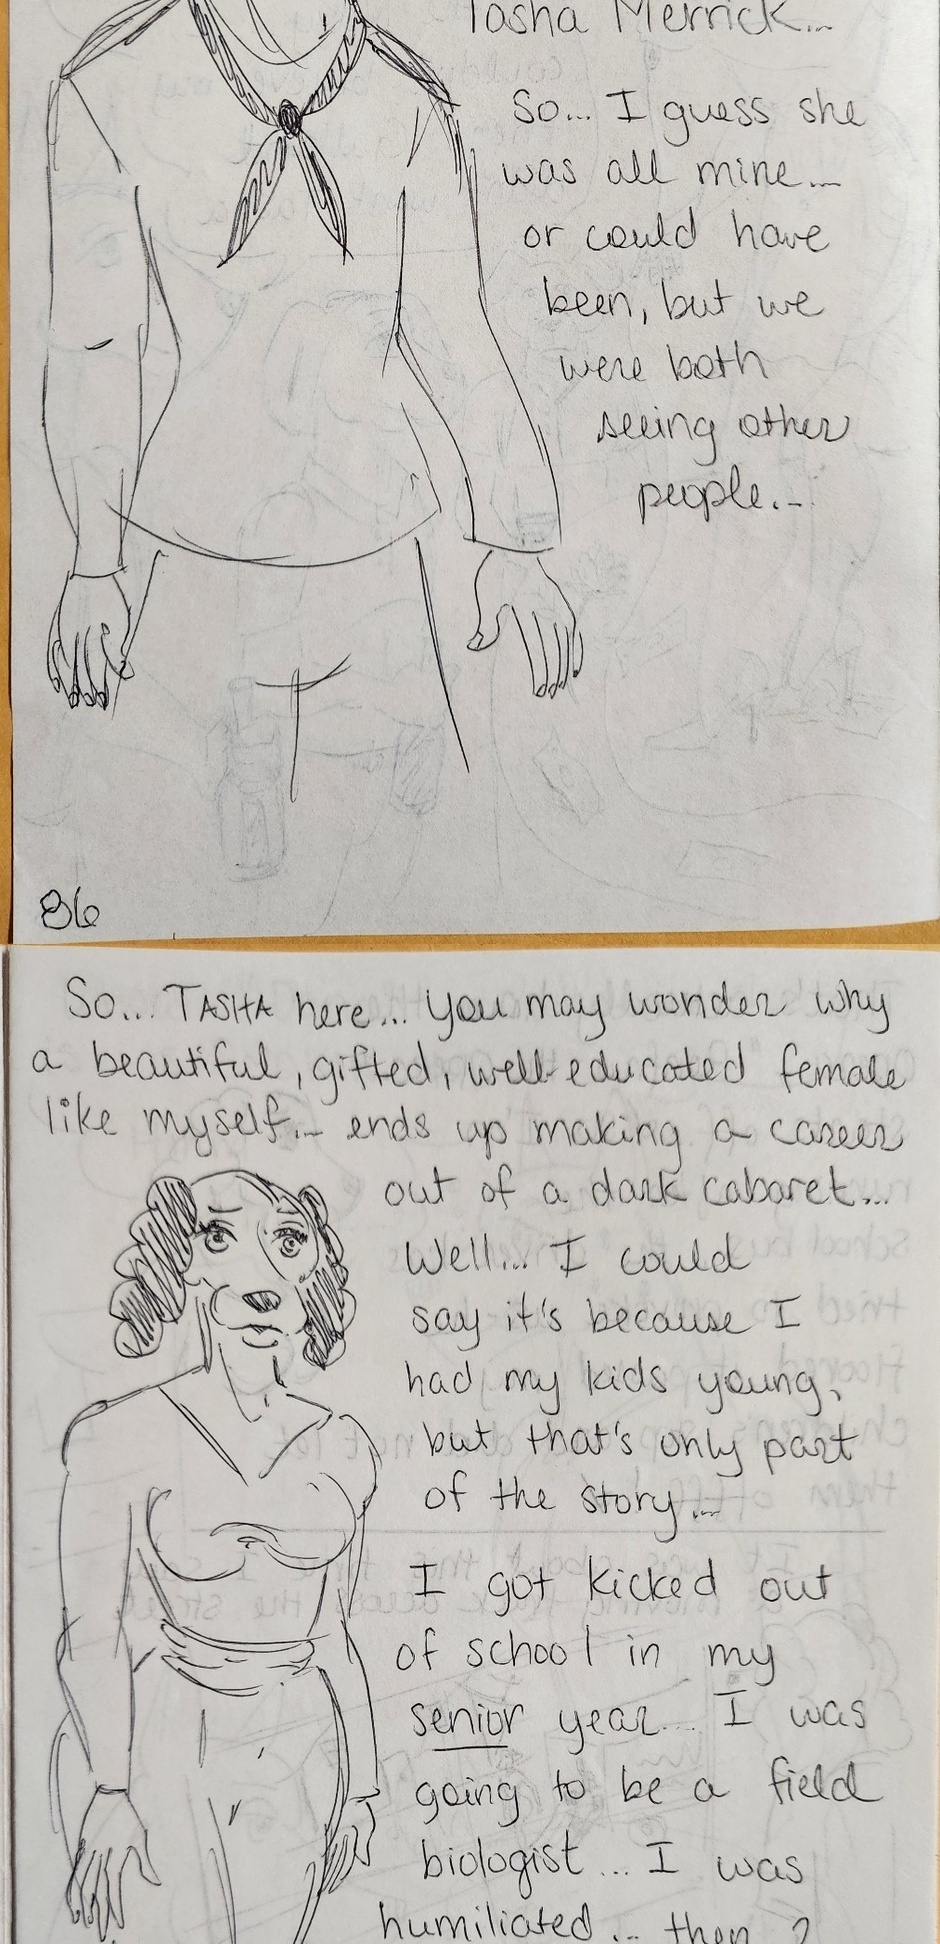 Tasha Merrick...
So... I guess she
was all mine...
or could have
been, but we
were both
seeing other
people...
86
So... TASHA here... you may wonder why
a beautiful, gifted, well-educated female
like myself... ends up making a career
out of a dark cabaret...
Well... I could
say it's because I
had my kids young,
but that's only part
of the story...
I got kicked out
of school in my
senior year... I was
going to be a field
biologist... I was
humiliated... then ?